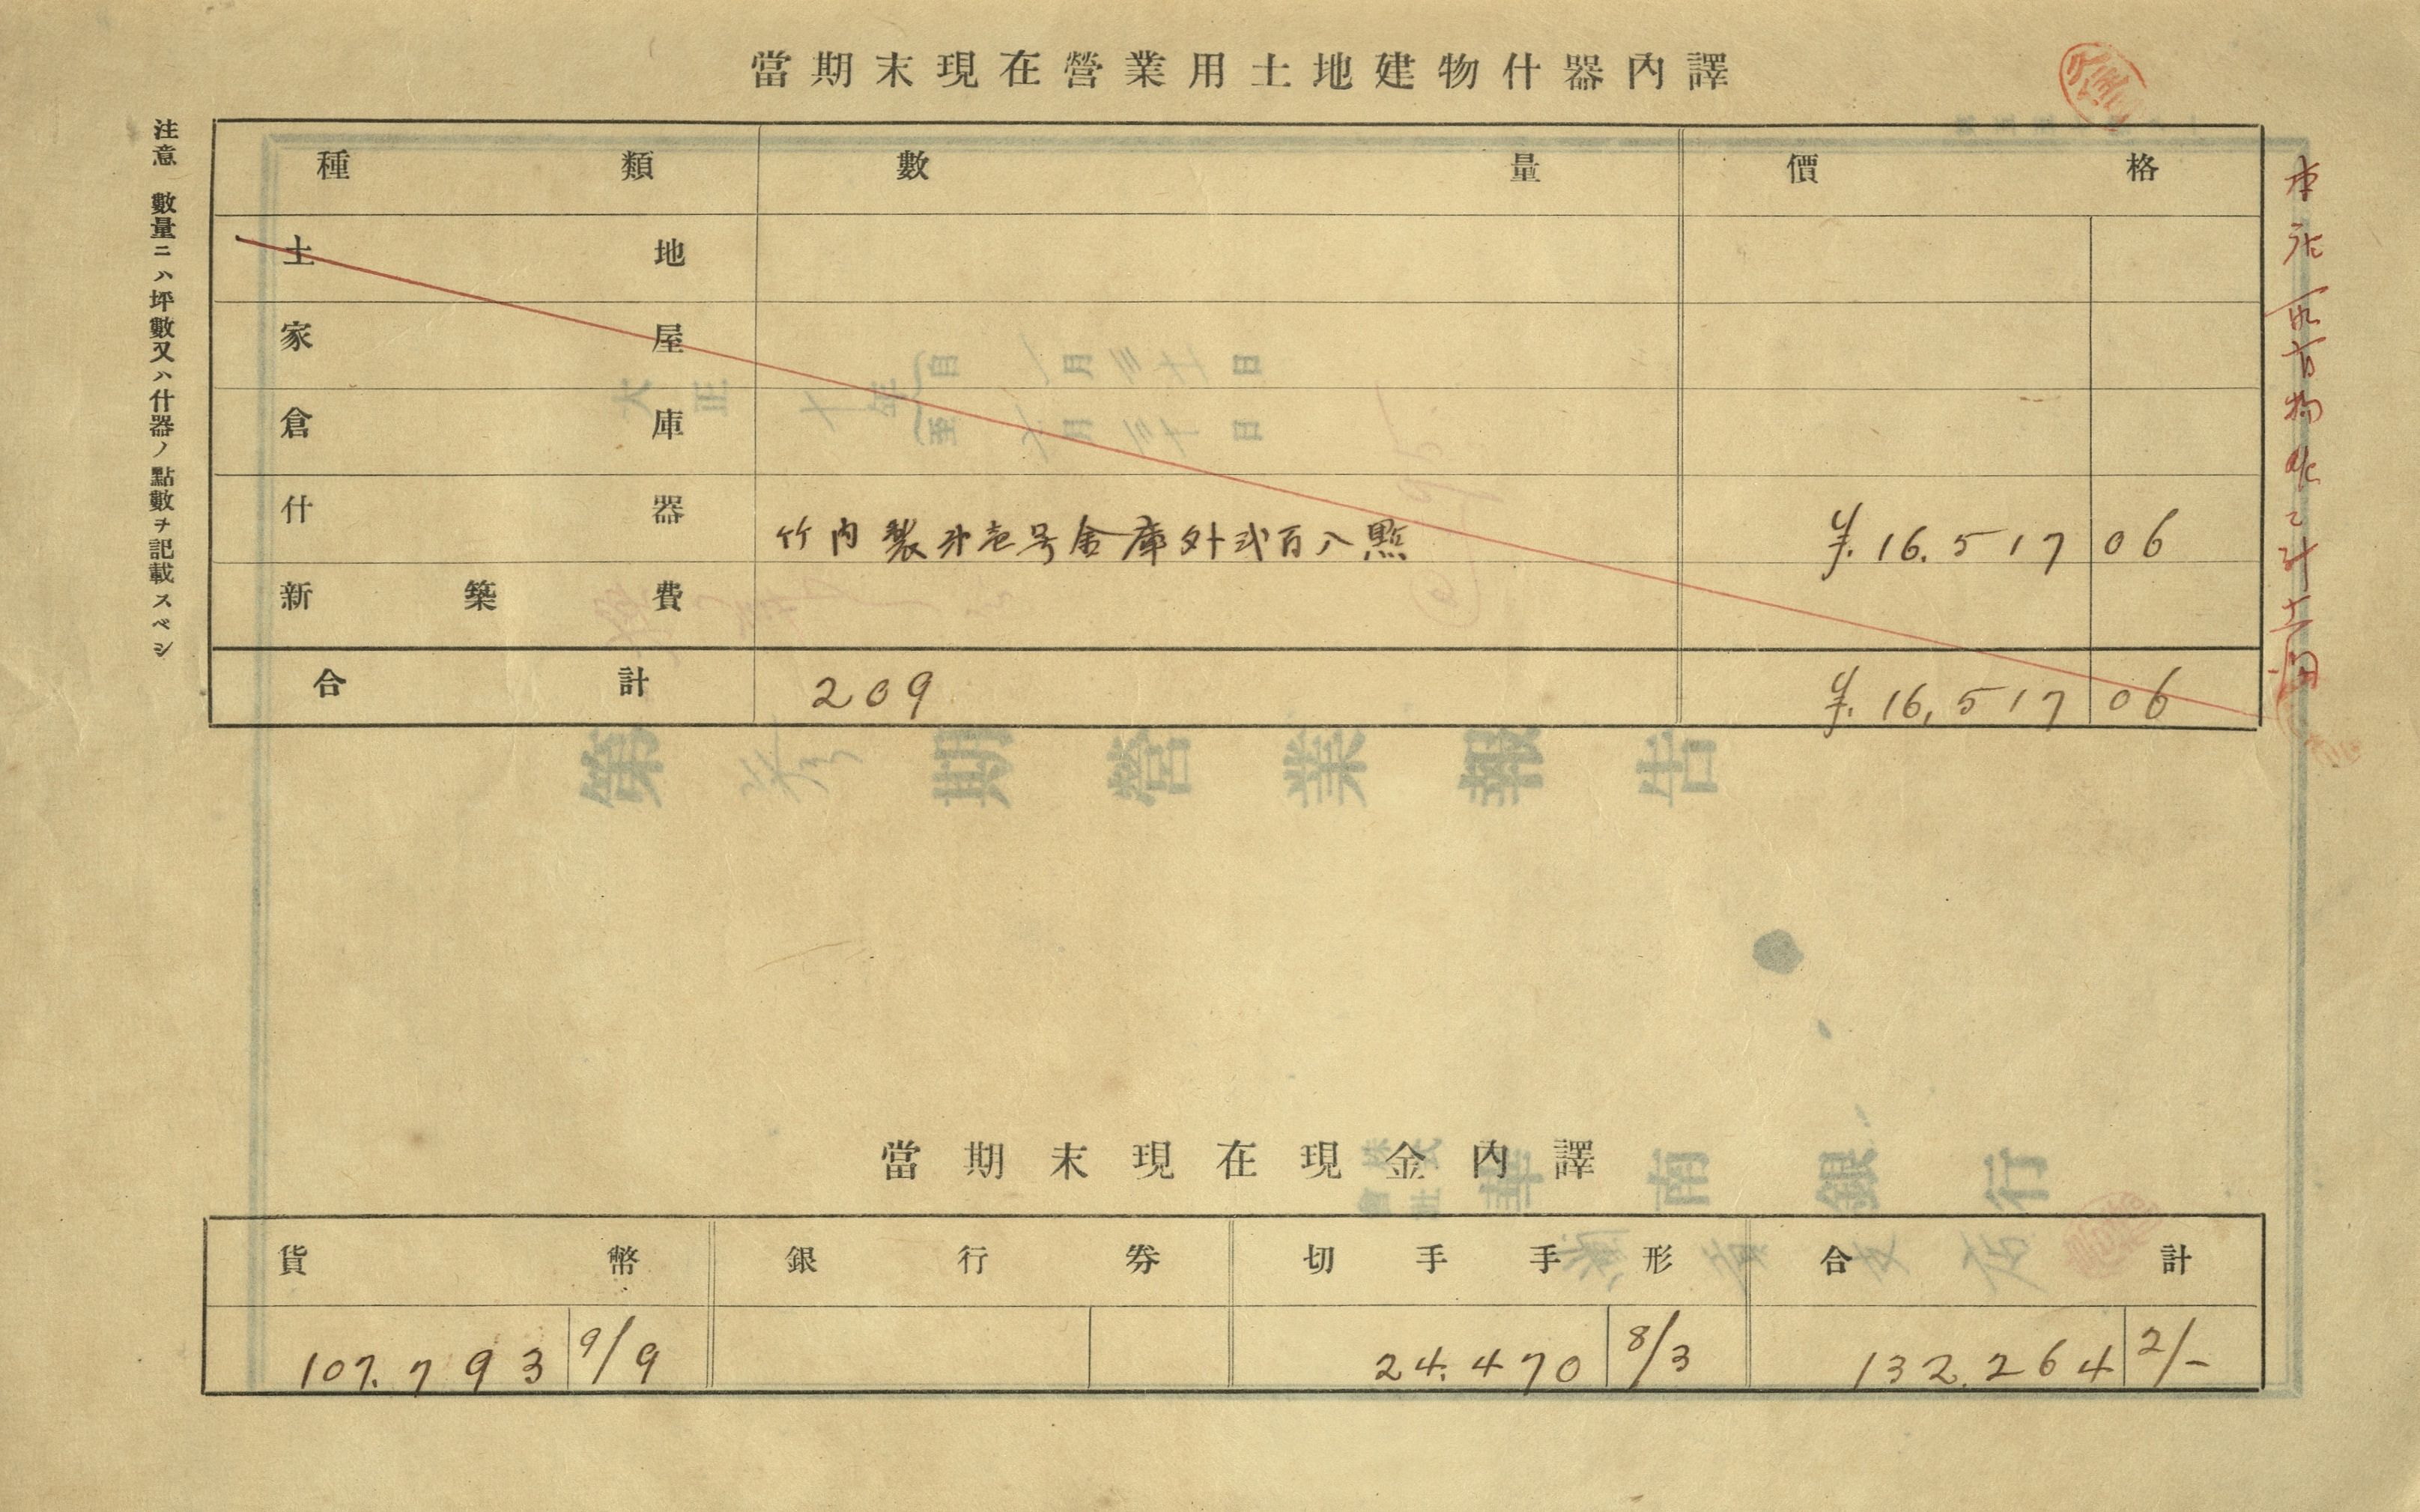 當期末現在營業用土地建物什器內譯
注意 數量ニハ坪數又ハ什器ノ點數ヲ記載スベシ
種類 數量 價格
土地
家屋
倉庫
什器 竹内製㐧壱号金庫外弐百八點 ¥.16.517 06
新築費
合計 209 ¥.16,517 06
當期末現在現金內譯
貨幣 銀行券 切手手形 合計
107.793 9/9 24.470 8/3 132.264 2/-